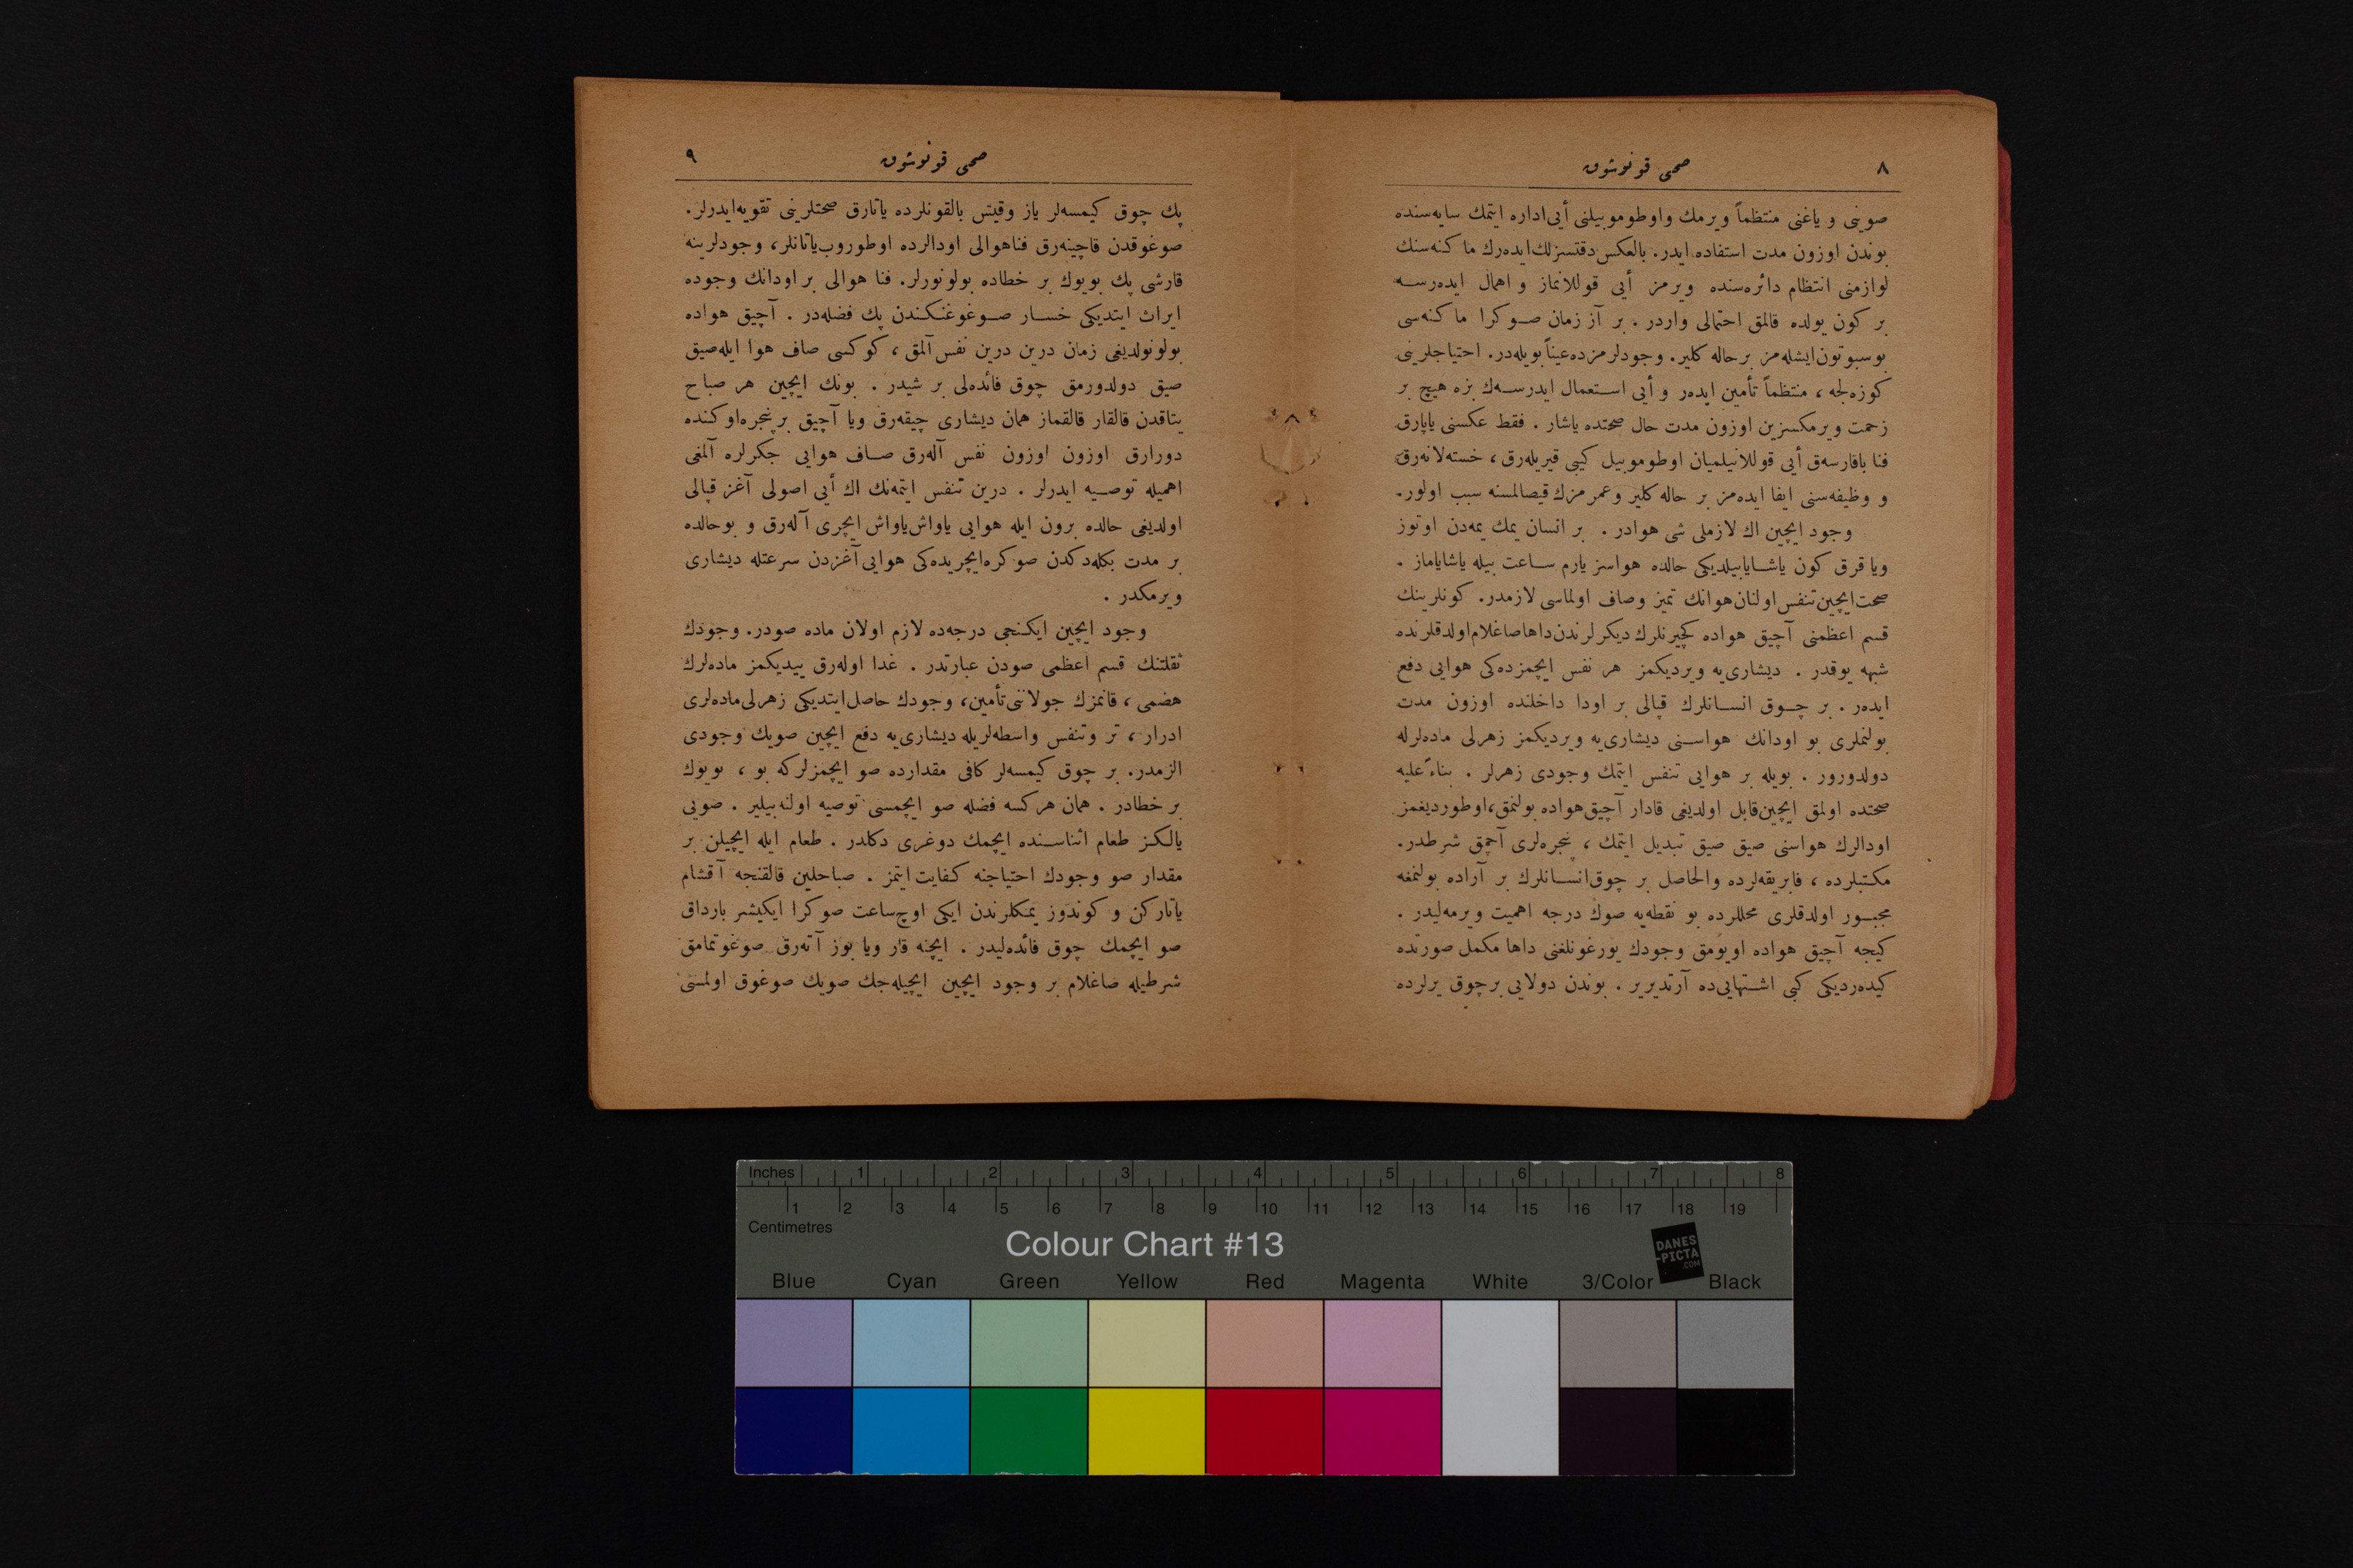 ٨
صحی قونوشوق
صوینی و یاغنی منتظماً ویرمك واوطوموبیلنی أیی اداره ایتمك سایه‌سنده
بوندن اوزون مدت استفاده ایدر. بالعکس دقتسزلك ایده‌رك ماکنه‌سنك
لوازمنی انتظام دائره‌سنده ویرمز أیی قوللانماز و اهمال ایده‌رسه
بر کون یولده قالمق احتمالی واردر . بر آز زمان صوکرا ماکنه‌سی
بوسبوتون ایشله‌مز بر حاله کلیر. وجودلرمزده عیناً بویله‌در. احتیاجلرینی
کوزه‌لجه ، منتظماً تأمین ایده‌ر و أیی استعمال ایدرسه‌ك بزه هیچ بر
زحمت ویرمکسزین اوزون مدت حال صحتده یاشار . فقط عکسنی یاپارق
فنا باقارسه‌ق أیی قوللانیلمیان اوطوموبیل کیبی قیریله‌رق ، خسته‌لانه‌رق
و وظیفه‌سنی ایفا ایده‌مز بر حاله کلیر وعمرمزك قیصالمسنه سبب اولور.
وجود ایچین اك لازملی شی هوادر . بر انسان یمك یمه‌دن اوتوز
ویا قرق کون یاشایابیلدیکی حالده هواسز یارم ساعت بیله یاشایاماز .
صحت ایچین تنفس اولنان هوانك تمیز وصاف اولماسی لازمدر. کونلرینك
قسم اعظمنی آچیق هواده کچیرنلرك دیکرلرندن داها صاغلام اولدقلرنده
شبهه یوقدر . دیشاری‌یه ویردیکمز هر نفس ایچمزده‌کی هوایی دفع
ایده‌ر . بر چوق انسانلرك قپالی بر اودا داخلنده اوزون مدت
بولنملری بو اودانك هواسنی دیشاری‌یه ویردیکمز زهرلی ماده‌لرله
دولدورور . بویله بر هوایی تنفس ایتمك وجودی زهرلر . بناءً علیه
صحتده اولمق ایچین قابل اولدیغی قادار آچیق هواده بولنمق، اوطوردیغمز
اودالرك هواسنی صیق صیق تبدیل ایتمك ، پنجره‌لری آچمق شرطدر.
مکتبلرده ، فابریقه‌لرده والحاصل بر چوق انسانلرك بر آراده بولنمغه
مجبور اولدقلری محللرده بو نقطه‌یه صوك درجه اهمیت ویرمه‌لیدر .
کیجه آچیق هواده اویومق وجودك یورغونلغنی داها مکمل صورتده
کیده‌ردیکی کبی اشتهایی‌ده آرتدیریر . بوندن دولایی بر چوق یرلرده
٩
صحی قونوشوق
پك چوق کیمسه‌لر یاز وقیش بالقونلرده یاتارق صحتلرینی تقویه ایدرلر.
صوغوقدن قاچینه‌رق فنا هوالی اودالرده اوطوروب یاتانلر، وجودلرینه
قارشی پك بویوك بر خطاده بولونورلر. فنا هوالی بر اودانك وجوده
ایراث ایتدیکی خسار صوغوغنکندن پك فضله‌در . آچیق هواده
بولونولدیغی زمان درین درین نفس آلمق ، کوکسی صاف هوا ایله صیق
صیق دولدورمق چوق فائده‌لی بر شیدر . بونك ایچین هر صباح
یتاقدن قالقار قالقماز همان دیشاری چیقه‌رق ویا آچیق بر پنجره اوکنده
دورارق اوزون اوزون نفس آله‌رق صاف هوایی جکرلره آلمغی
اهمیله توصیه ایدرلر . درین تنفس ایتمه‌نك اك أیی اصولی آغز قپالی
اولدیغی حالده برون ایله هوایی یاواش یاواش ایچری آله‌رق و بو حالده
بر مدت بکله‌دکدن صوکره ایچریده‌کی هوایی آغزدن سرعتله دیشاری
ویرمکدر .
وجود ایچین ایکنجی درجه‌ده لازم اولان ماده صودر. وجودك
ثقلتنك قسم اعظمی صودن عبارتدر . غدا اوله‌رق ییدیکمز ماده‌لرك
هضمی ، قانمزك جولاننی تأمین، وجودك حاصل ایتدیکی زهرلی ماده‌لری
ادرار ، تر وتنفس واسطه‌لریله دیشاری‌یه دفع ایچین صویك وجودی
الزمدر. بر چوق کیمسه‌لر کافی مقدارده صو ایچمزلرکه بو ، بویوك
بر خطادر . همان هرکسه فضله صو ایچمسی توصیه اولنه‌بیلیر . صویی
یالکز طعام اثناسنده ایچمك دوغری دکلدر . طعام ایله ایچیلن بر
مقدار صو وجودك احتیاجنه کفایت ایتمز . صباحلین قالقنجه آقشام
یاتارکن و کوندوز یمکلرندن ایکی اوچ ساعت صوکرا ایکیشر بارداق
صو ایچمك چوق فائده‌لیدر . ایچنه قار ویا بوز آته‌رق صوغوتمامق
شرطیله صاغلام بر وجود ایچین ایچیله‌جك صویك صوغوق اولمسی
Inches 1 2 3 4 5 6 7 8
1 2 3 4 5 6 7 8 9 10 11 12 13 14 15 16 17 18 19
Centimetres
Colour Chart #13
DANES
-PICTA
.COM
Blue Cyan Green Yellow Red Magenta White 3/Color Black